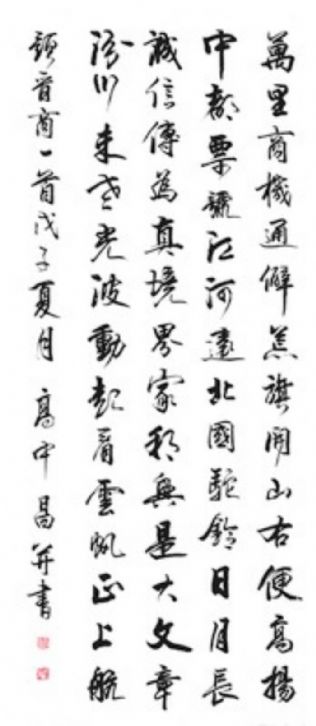 萬里商機通僻荒旗開山右便高揚
中都票號江河遠北國駝鈴日月長
誠信傳為真境界家邦興是大文章
汾川未老光波動起看雲帆正上航
頌晉商一首戊子夏月 高中昌并書